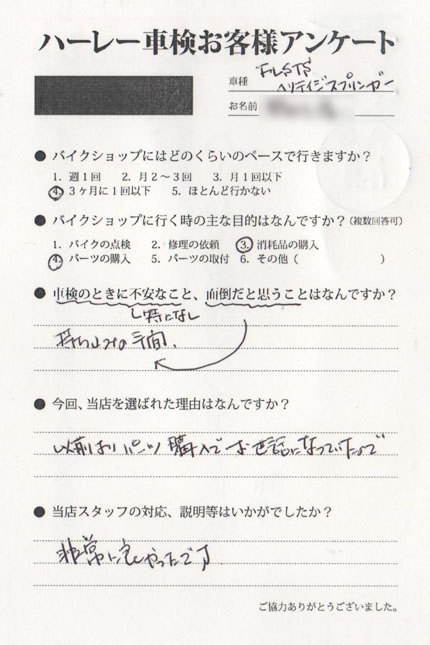 ハーレー車検お客様アンケート
車種 FLSTS
ヘリテイジスプリンガー
お名前
● バイクショップにはどのくらいのペースで行きますか？
1. 週１回 2. 月２～３回 3. 月１回以下
4. ３ヶ月に１回以下 5. ほとんど行かない
● バイクショップに行く時の主な目的はなんですか？(複数回答可)
1. バイクの点検 2. 修理の依頼 3. 消耗品の購入
4. パーツの購入 5. パーツの取付 6. その他（ ）
● 車検のときに不安なこと、面倒だと思うことはなんですか？
特になし
持ち込みの手間、
● 今回、当店を選ばれた理由はなんですか？
以前よりパーツ購入でお世話になっていたので
● 当店スタッフの対応、説明等はいかがでしたか？
非常に良かったです
ご協力ありがとうございました。